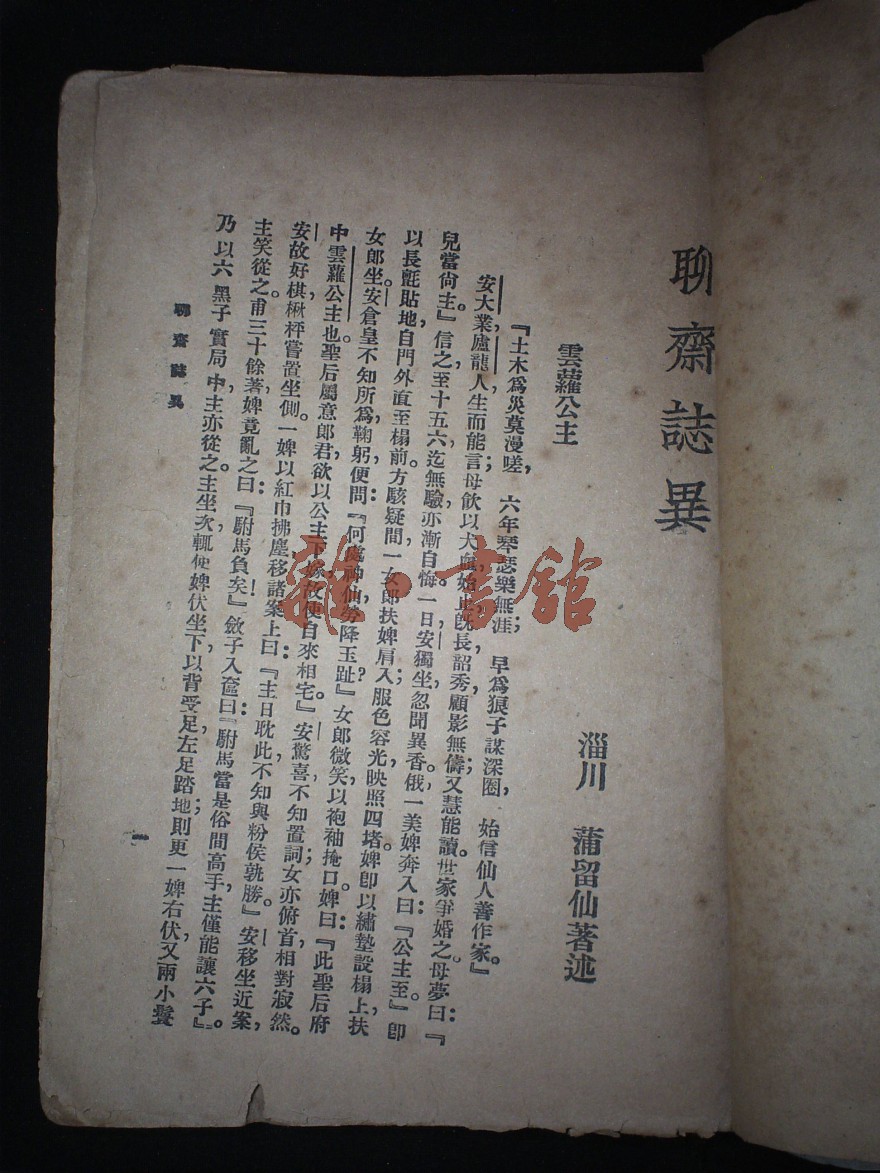 聊齋誌異
淄川　蒲留仙著述
雲蘿公主
『土木爲災莫漫嗟，　六年琴瑟樂無涯；　早爲狼子謀深圈，　始信仙人善作家。』
安大業，盧龍人，生而能言；母飲以犬血，始止。旣長，韶秀，顧影無儔；又慧，能讀。世家爭婚之。母夢曰：『
兒當尙主。』信之。至十五六，迄無驗，亦漸自悔。一日，安獨坐，忽聞異香。俄一美婢奔入，曰：『公主至。』卽
以長氈貼地，自門外直至榻前。方駭疑間，一女郎扶婢肩入；服色容光，映照四堵。婢卽以繡墊設榻上，扶
女郎坐。安倉皇不知所爲，鞠躬便問：『何處神仙，勞降玉趾？』女郎微笑，以袍袖掩口。婢曰：『此聖后府
中雲蘿公主也。聖后屬意郎君，欲以公主下嫁，故使自來相宅。』安驚喜，不知置詞；女亦俯首，相對寂然。
安故好棋，楸枰嘗置坐側。一婢以紅巾拂塵，移諸案上，曰：『主日耽此，不知與粉侯孰勝？』安移坐近案，
主笑從之。甫三十餘著，婢竟亂之，曰：『駙馬負矣！』斂子入奩，曰：『駙馬當是俗間高手，主僅能讓六子。』
乃以六黑子實局中，主亦從之。主坐次，輒使婢伏坐下，以背受足；左足踏地，則更一婢右伏。又兩小鬟
聊齋誌異
一
雜·書館